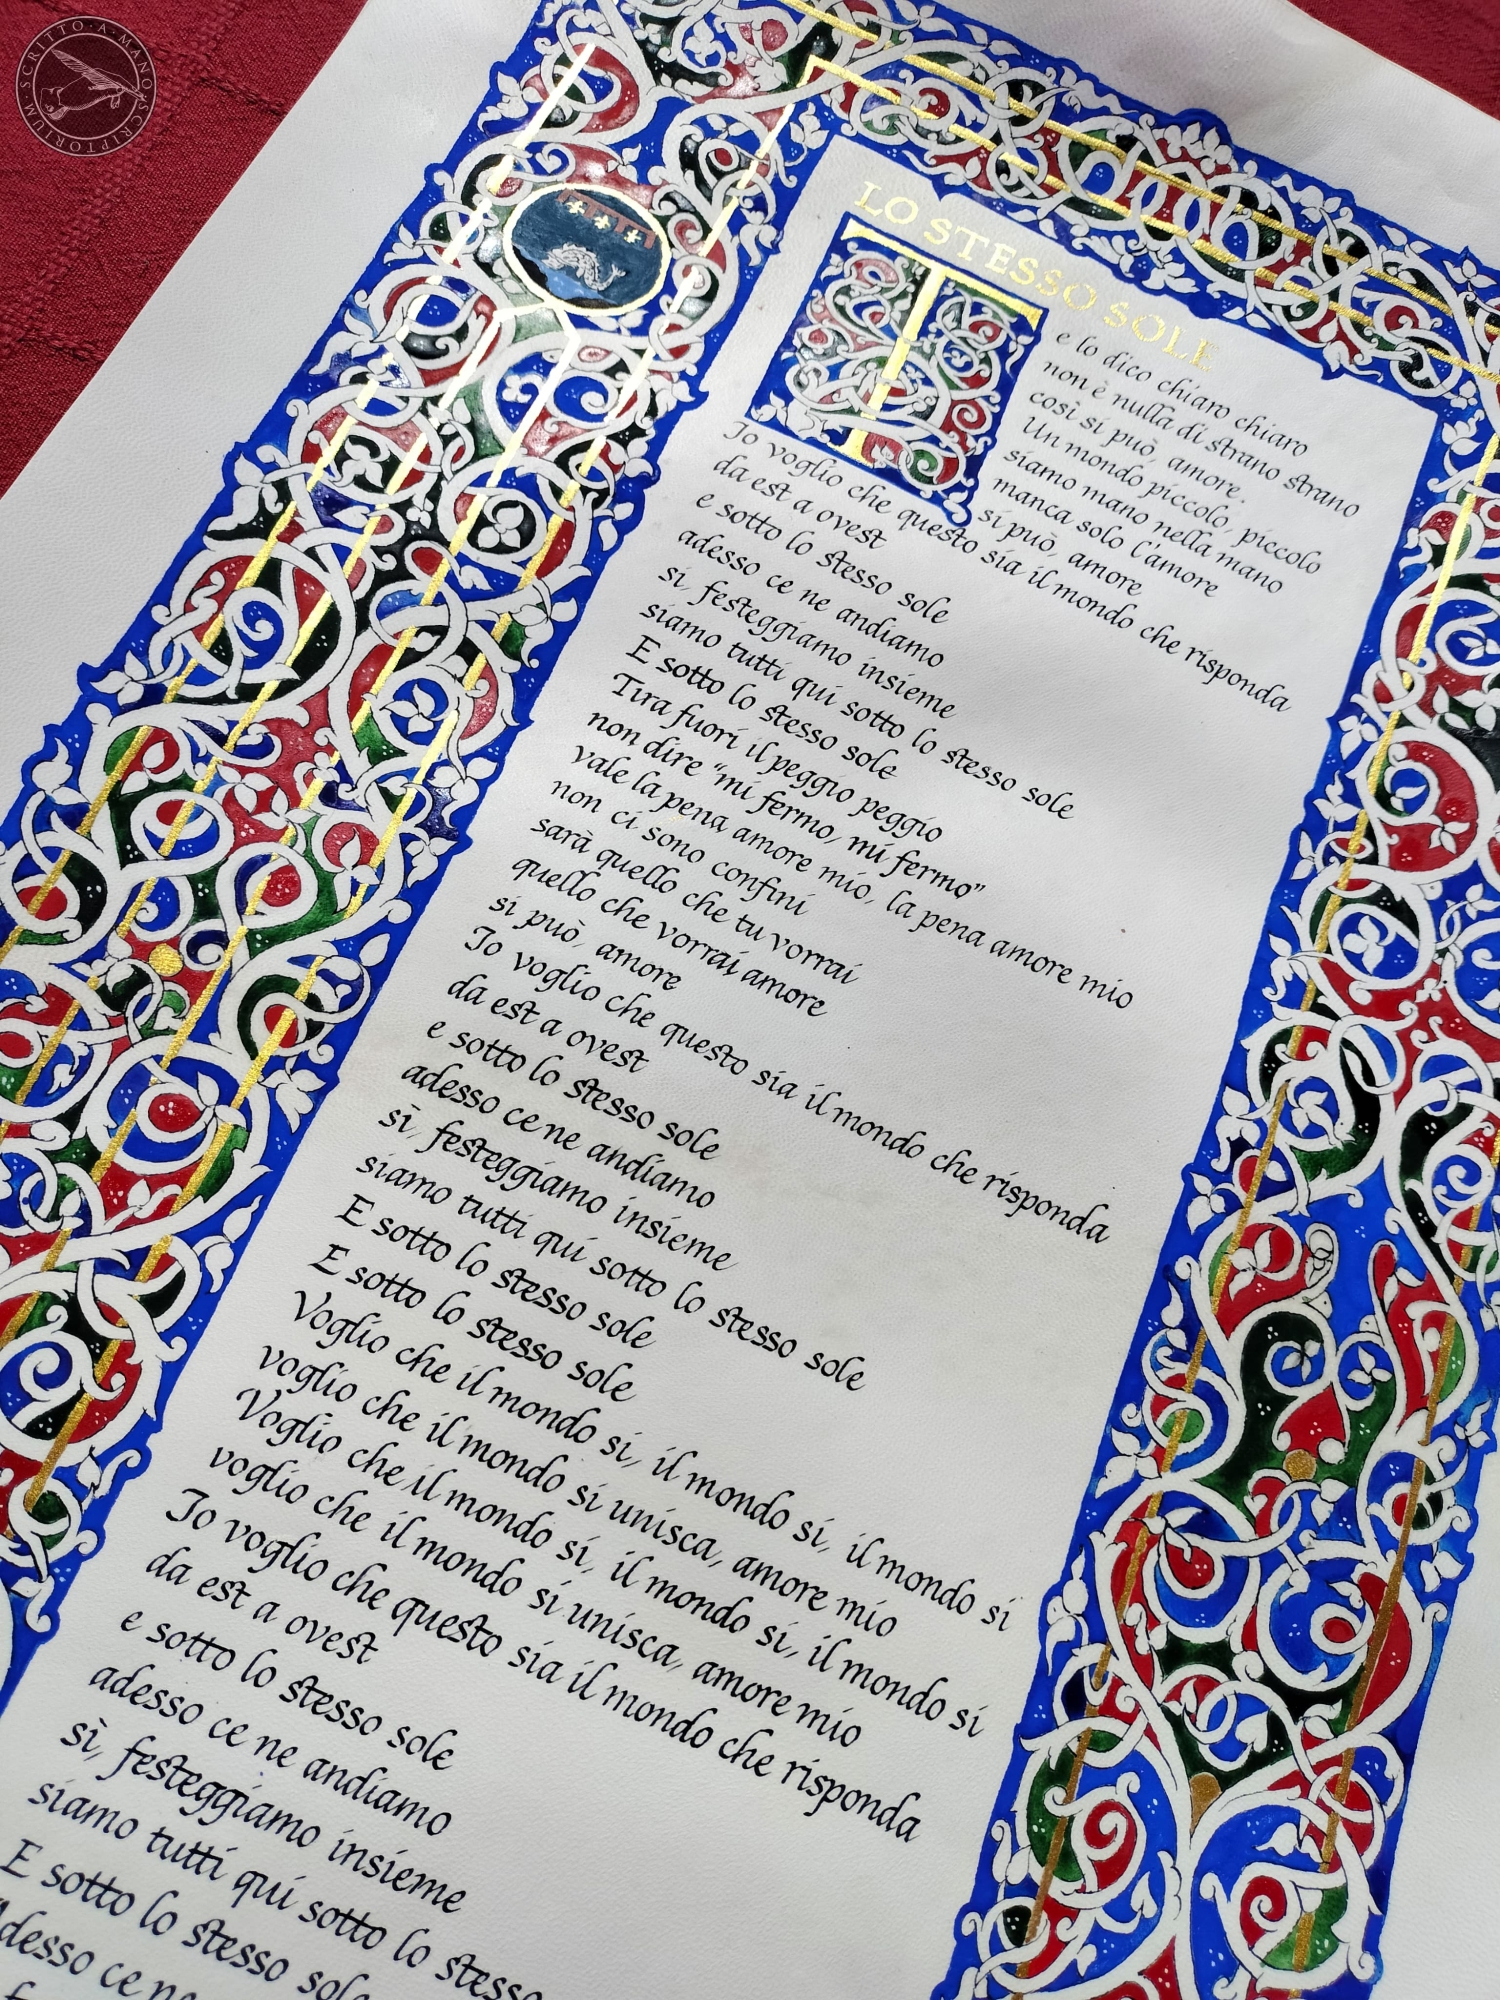 SCRITTO A MANO SCRIPTORIUM
LO STESSO SOLE
Te lo dico chiaro chiaro
non è nulla di strano strano
così si può, amore.
Un mondo piccolo, piccolo
siamo mano nella mano
manca solo l'amore
si può, amore
Io voglio che questo sia il mondo che risponda
da est a ovest
e sotto lo stesso sole
adesso ce ne andiamo
sì, festeggiamo insieme
siamo tutti qui sotto lo stesso sole
E sotto lo stesso sole
Tira fuori il peggio peggio
non dire "mi fermo, mi fermo"
vale la pena amore mio, la pena amore mio
non ci sono confini
sarà quello che tu vorrai
quello che vorrai amore
si può, amore
Io voglio che questo sia il mondo che risponda
da est a ovest
e sotto lo stesso sole
adesso ce ne andiamo
sì, festeggiamo insieme
siamo tutti qui sotto lo stesso sole
E sotto lo stesso sole
E sotto lo stesso sole
Voglio che il mondo si, il mondo si, il mondo si
voglio che il mondo si unisca, amore mio
Voglio che il mondo si, il mondo si, il mondo si
voglio che il mondo si unisca, amore mio
Io voglio che questo sia il mondo che risponda
da est a ovest
e sotto lo stesso sole
adesso ce ne andiamo
sì, festeggiamo insieme
siamo tutti qui sotto lo stesso
E sotto lo stesso sole
Adesso ce ne